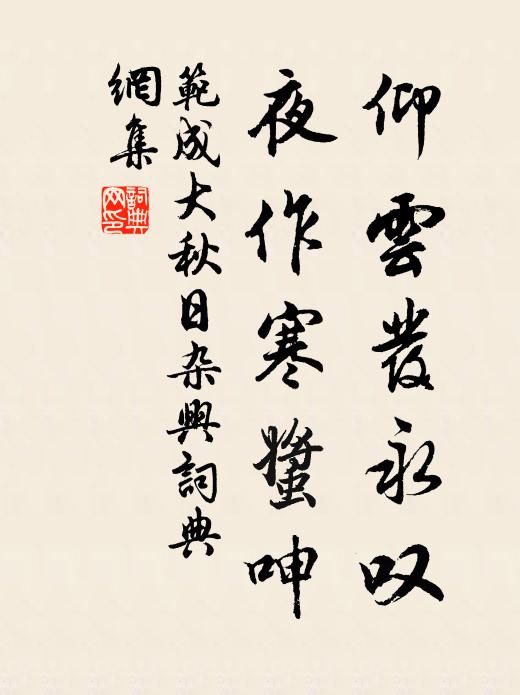 仰雲發永叹
夜作寒螿呻
範成大秋日杂興詞典
網集
詞典
网印